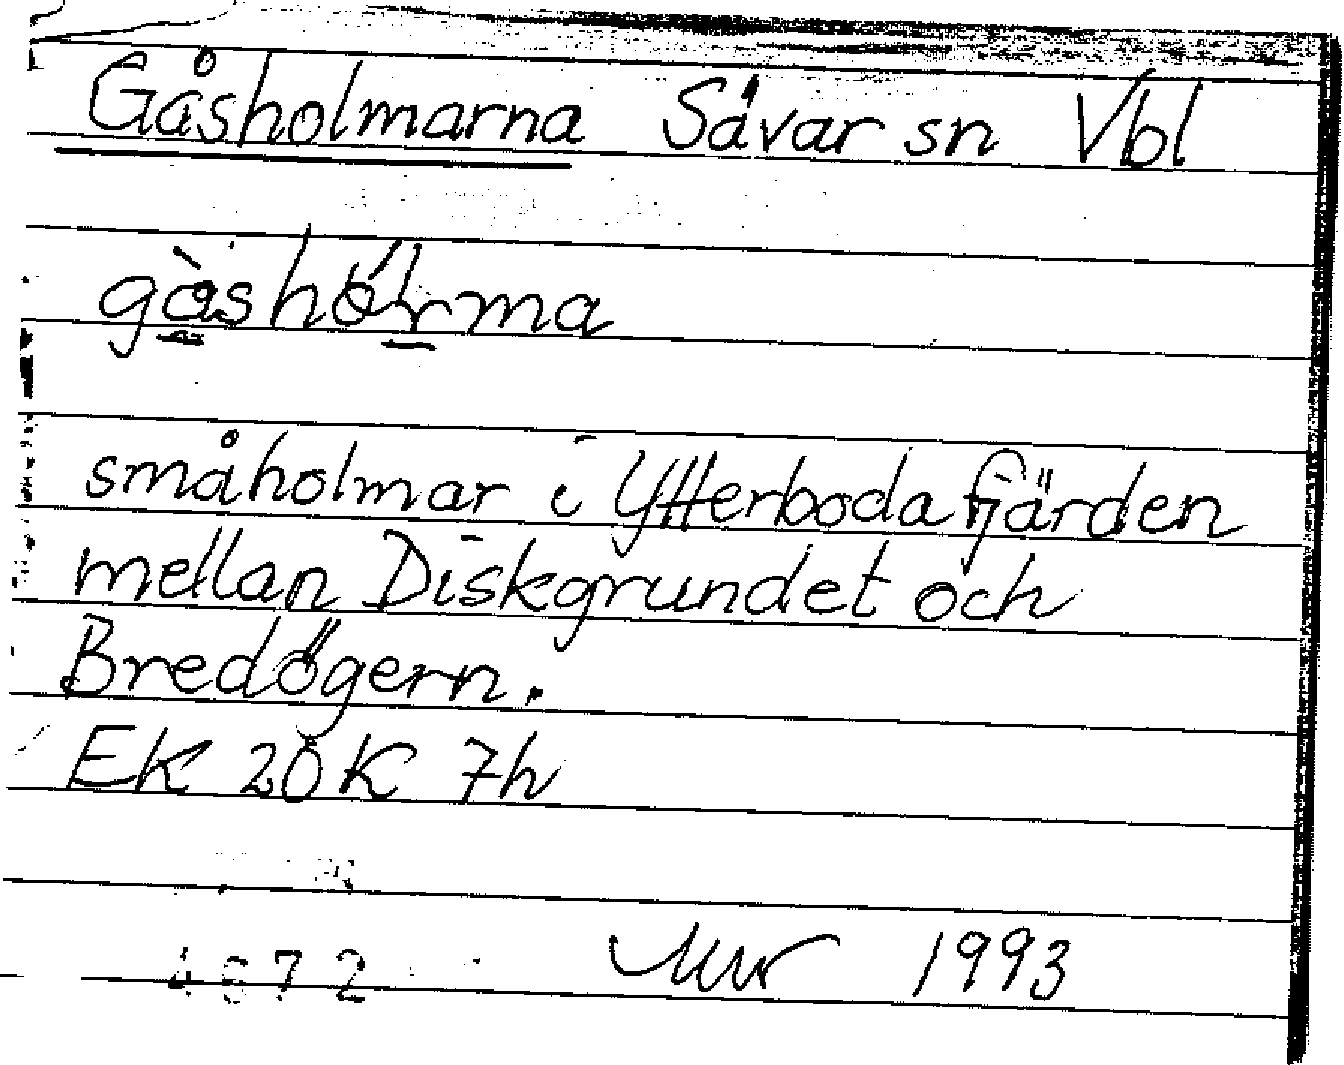 Gåsholmarna Sävar sn Vbl
småholmar i Ytterbodafjärden
mellan Diskgrundet och
Bredögern.
EK 20K 7h
1993